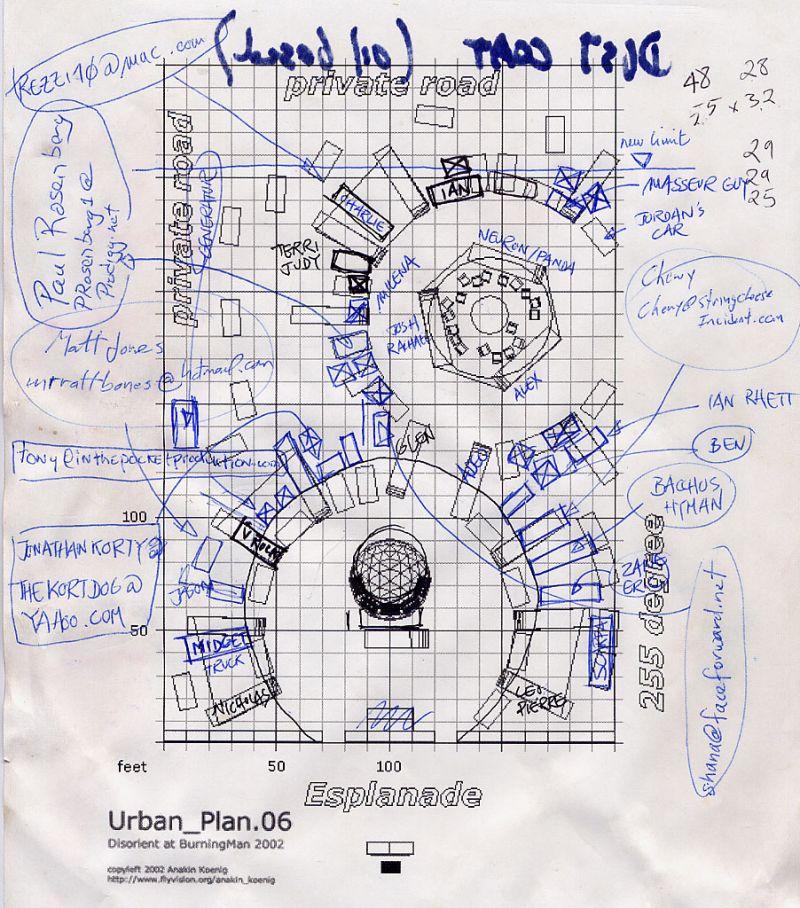 DUST COAT (oil based)
private road
48 28
25 x 32
29
29
25
REZZI10@mac.com
Paul Rosenberg
PRosenburg1@
Prodigy.net
private road
GENERATOR
new limit
MASSEUR GUY
JORDAN'S
CAR
IAN
CHARLIE
TERRI
JUDY
MILENA
NEURON/PANDA
JOSH
RACHAEL
ALEX
Chewy
Chewy@stringcheese
Incident.com
Matt Jones
mrrattbones@hotmail.com
IAN RHETT
BEN
GLEN
Tony@inthepocketproduction.com
BACCHUS
HYMAN
100
JONATHAN KORTY@
THEKORTDOG@
YAHOO.COM
JASON
50
MIDGET
TRUCK
NICHOLAS
LEO
PIERRE
SCARPA
255 degree
shana@faceforward.net
feet 50 100
Esplanade
Urban_Plan.06
Disorient at BurningMan 2002
copyleft 2002 Anakin Koenig
http://www.flyvision.org/anakin_koenig